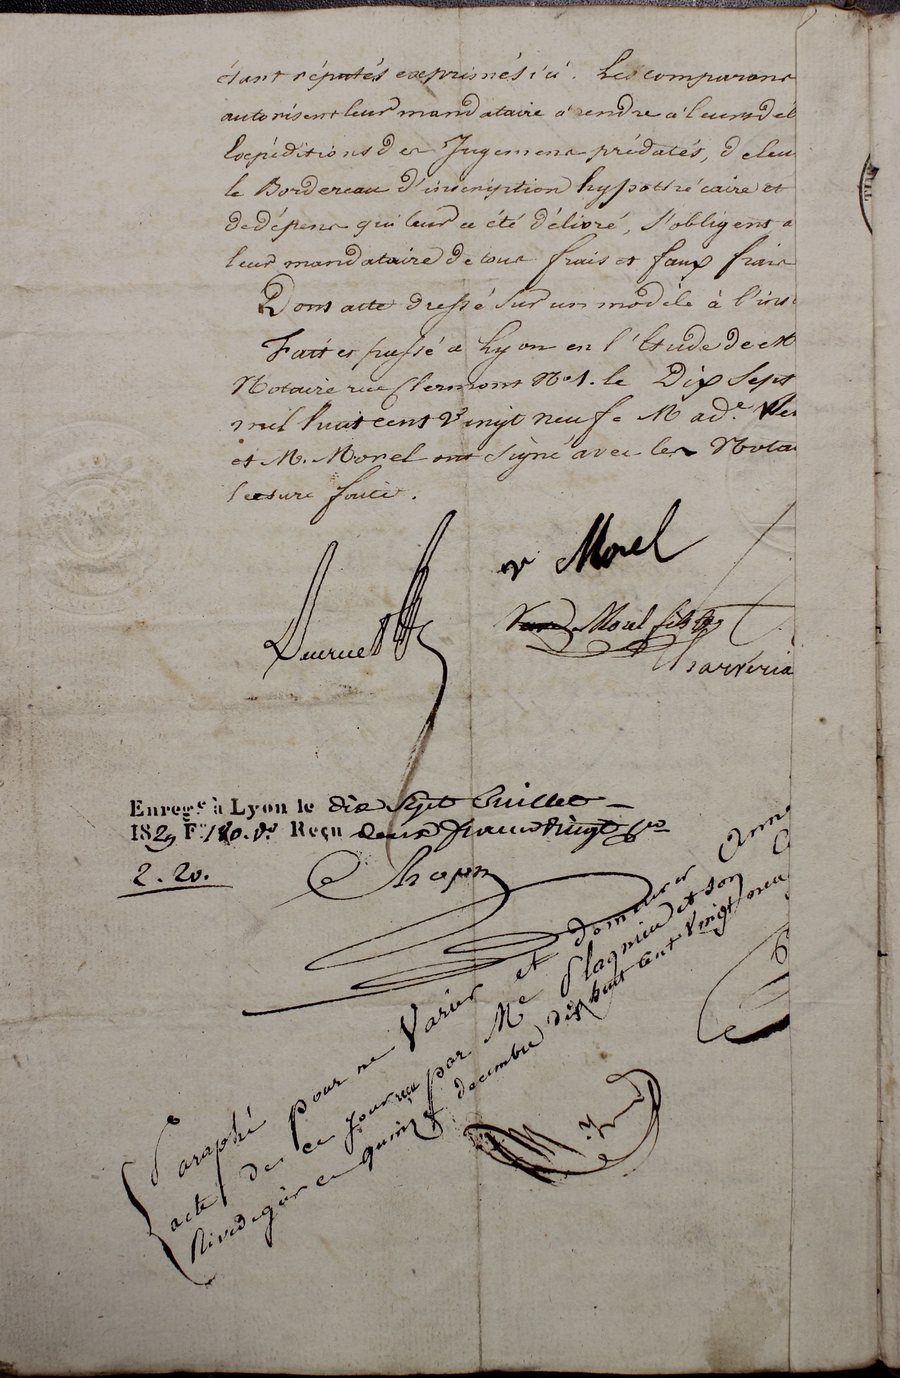 étant réputés exprimés ici. Les comparans
autorisent leur mandataire à rendre à leurs dé
Expéditions des Jugemens prédatés, de leu
le Bordereau d'inscription hypothécaire et
de dépens qui leur a été délivré, s'obligent a
leur mandataire de tous frais et faux frais
Dont acte dressé sur un modèle à l'ins
Fait et passé à Lyon en l'Etude de M
Notaire rue Clermont No 1. le Dix Sept
mil huit cent vingt neuf. Made.
et M. Morel ont signé avec les Nota
lecture faite.
Ve Morel
Morel fils
Enregé à Lyon le dix Sept Juillet
1829 Fo 180. Vo Reçu deux francs vingt cs
2.20.
Paraphé pour ne Varier et demeurer Anne
acte de ce jour reçu par Me Plagnieu et son
Rivedegier ce quinze decembre dix huit cent vingt neu